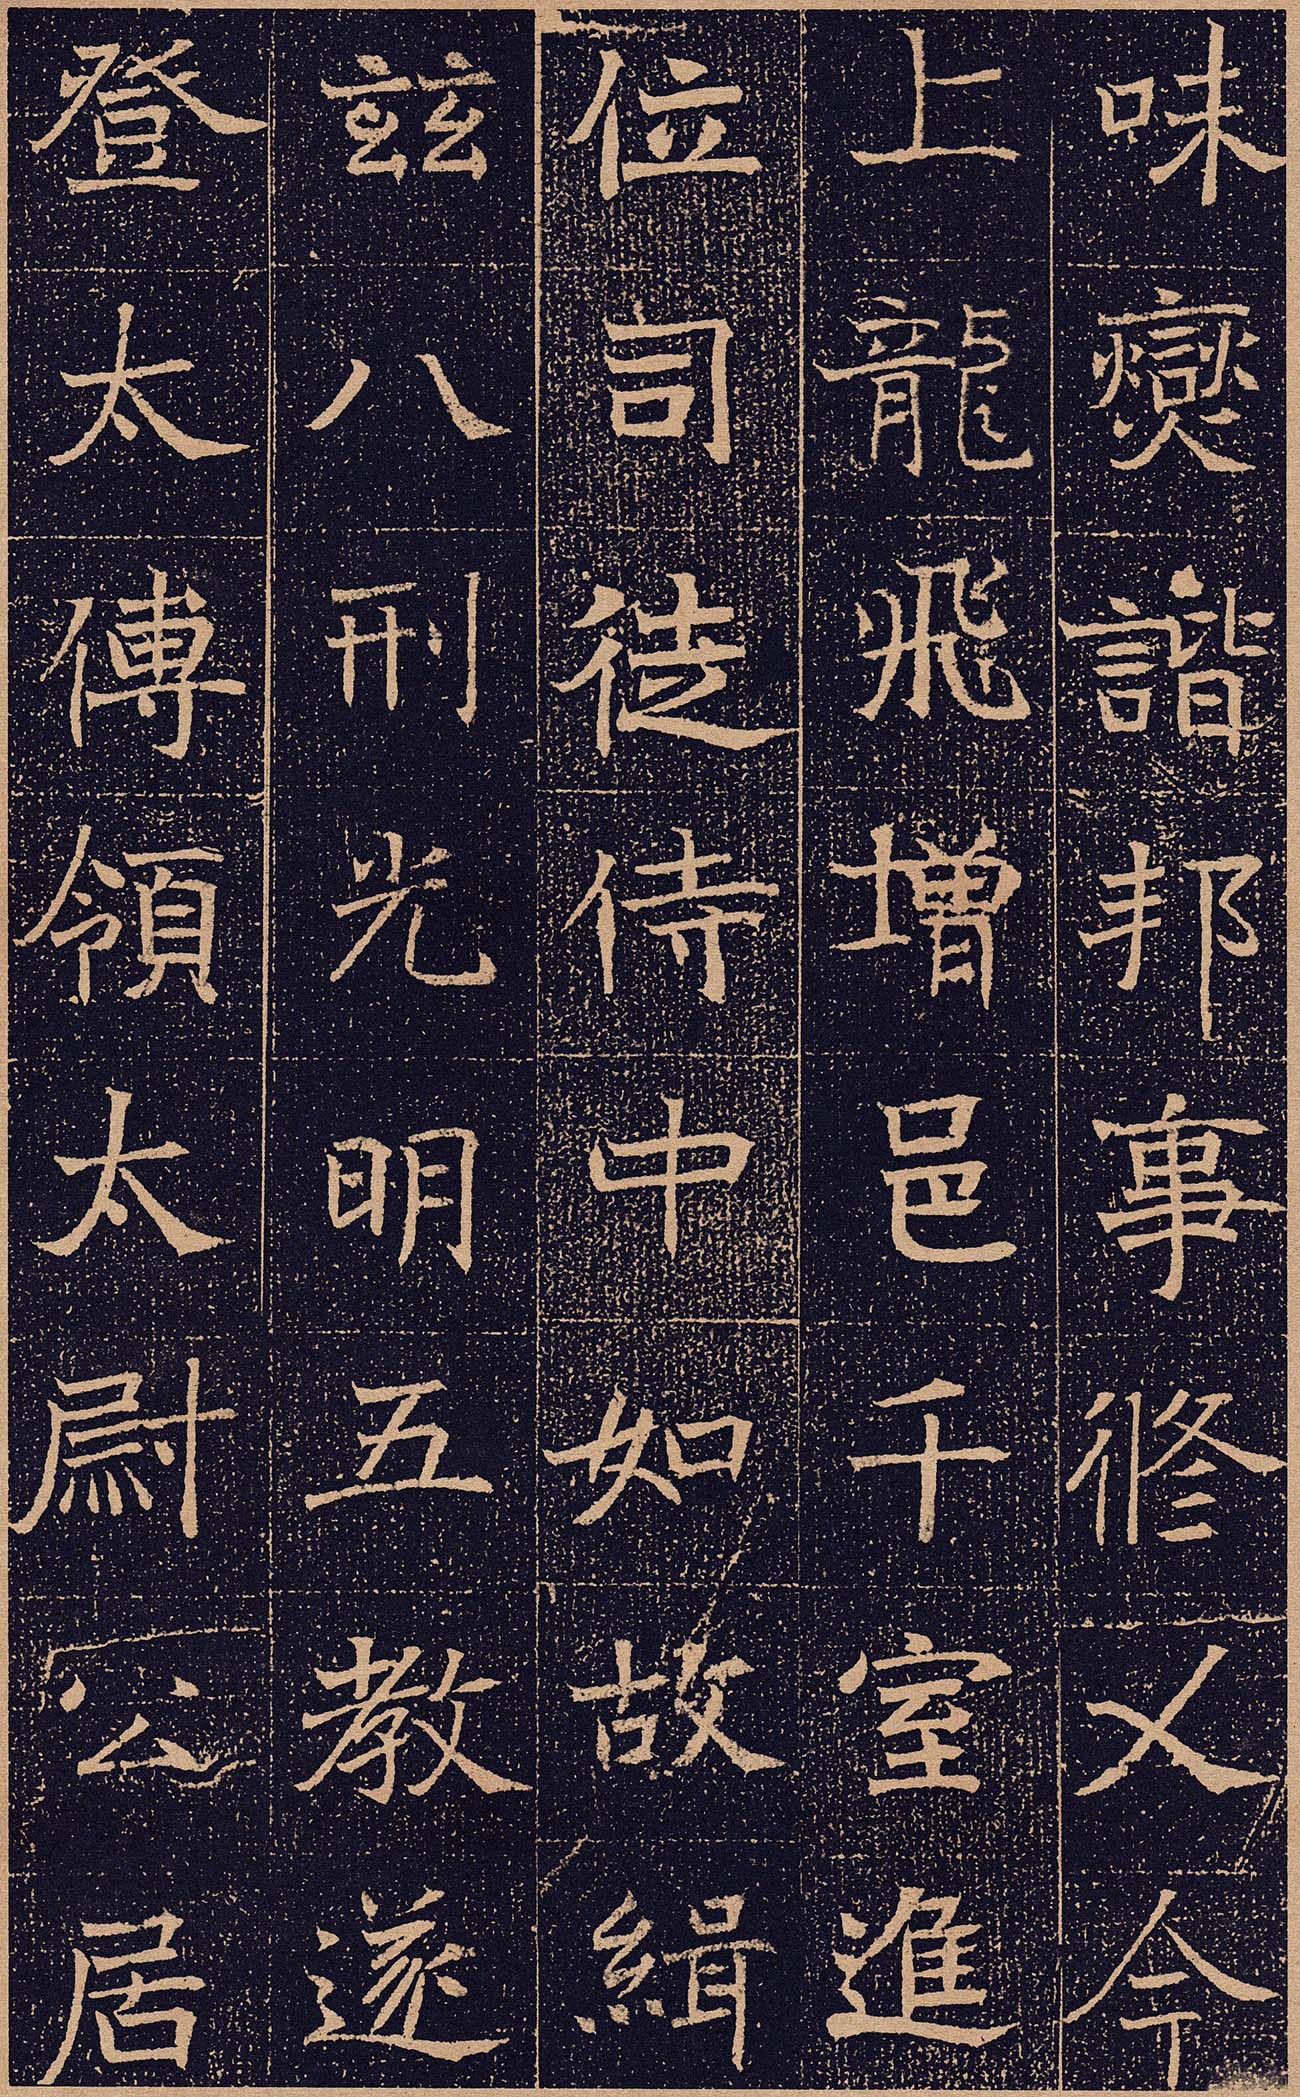 味燮諧邦事脩乂今
上龍飛增邑千室進
位司徒侍中如故緝
玆八刑光明五教遂
登太傅領太尉公居